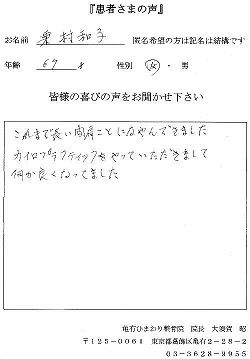 『患者さまの声』
お名前 栗村和子 匿名希望の方は記名は結構です
年齢 67 才 性別 女・男
皆様の喜びの声をお聞かせ下さい
これまで長い間肩こになやんできました
カイロプラクティックをやっていただきまして
何か良くなってました
亀有ひまわり整骨院 院長 大須賀 昭
〒125-0061 東京都葛飾区亀有2-28-2
03-3628-9955